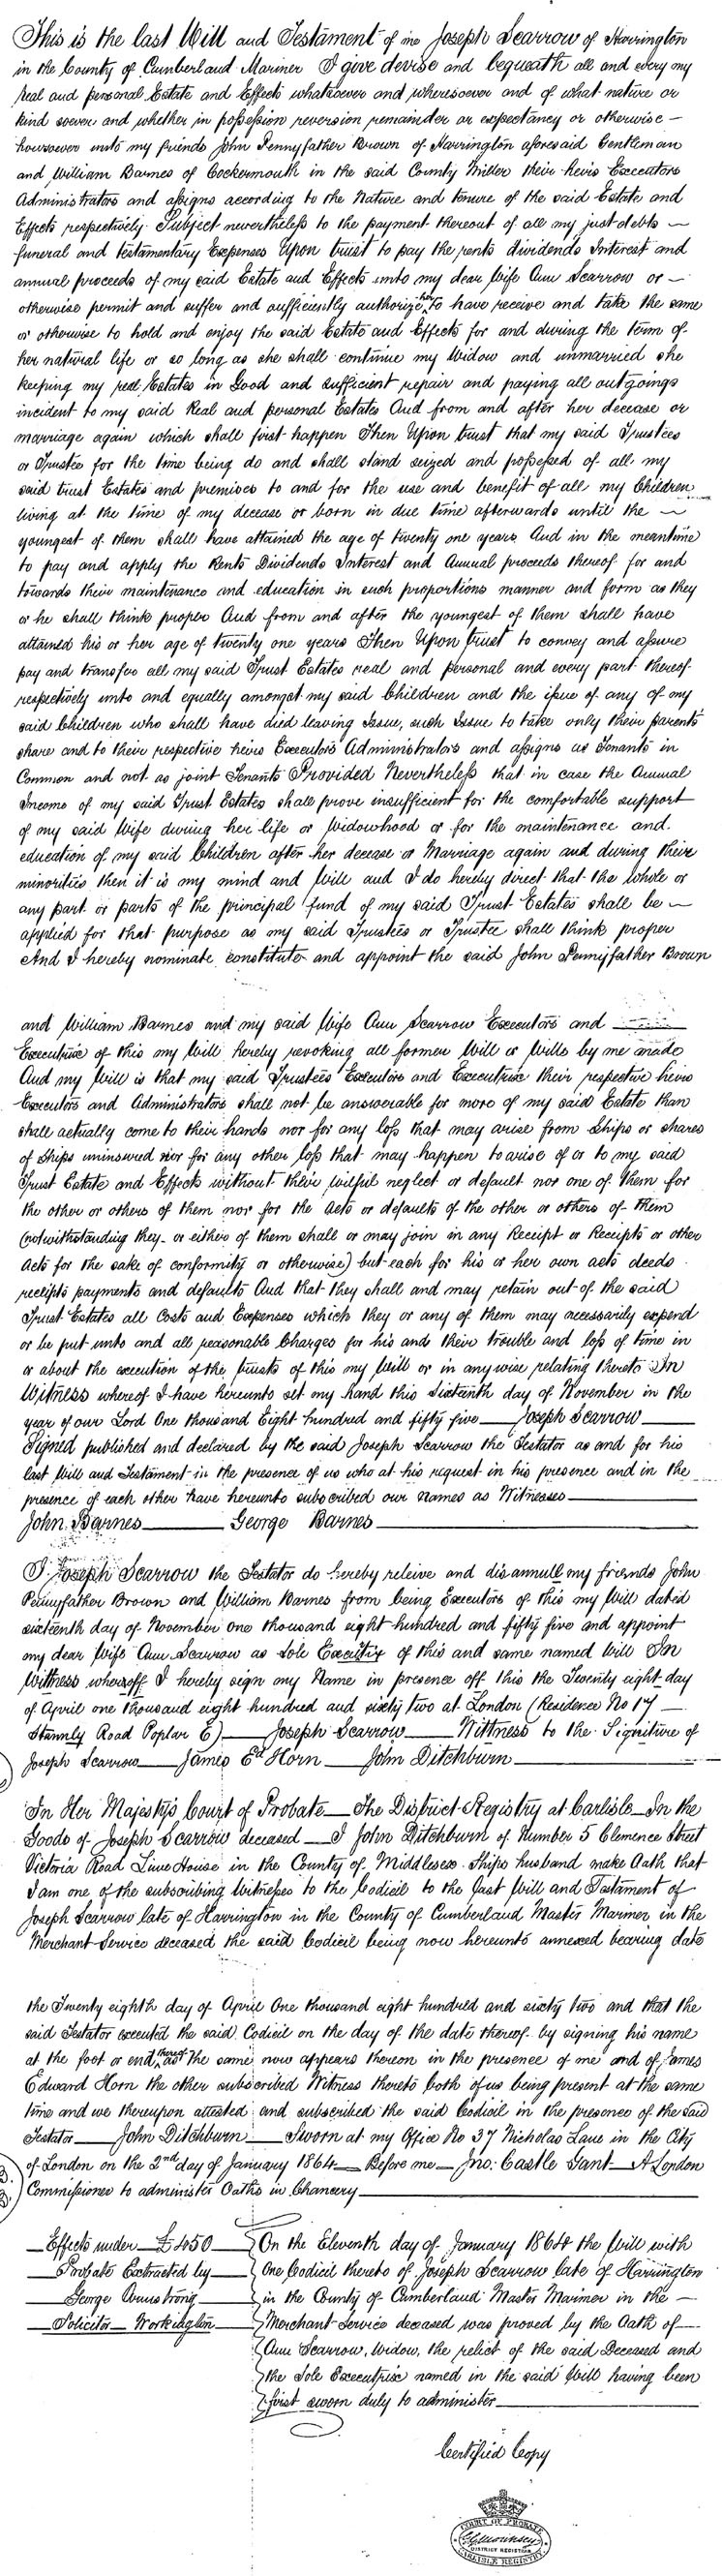 This is the last Will and Testament of me Joseph Scarrow of Harrington
in the County of Cumberland Mariner I give devise and bequeath all and every my
real and personal Estate and Effects whatsoever and wheresoever and of what nature or
kind soever and whether in possession reversion remainder or expectancy or otherwise —
howsoever unto my friends John Pennyfather Brown of Harrington aforesaid Gentleman
and William Barnes of Cockermouth in the said County Miller their heirs Executors
Administrators and assigns according to the Nature and tenure of the said Estate and
Effects respectively Subject nevertheless to the payment thereout of all my just debts —
funeral and testamentary Expenses Upon trust to pay the rents dividends Interest and
annual proceeds of my said Estate and Effects unto my dear Wife Ann Scarrow or —
otherwise permit and suffer and sufficiently authorize her to have receive and take the same
or otherwise to hold and enjoy the said Estate and Effects for and during the term of
her natural life or so long as she shall continue my Widow and unmarried she
keeping my real Estates in Good and sufficient repair and paying all outgoings
incident to my said Real and personal Estates And from and after her decease or
marriage again which shall first happen Then Upon trust that my said Trustees
or Trustee for the time being do and shall stand seized and possessed of all my
said trust Estates and premises to and for the use and benefit of all my Children
living at the time of my decease or born in due time afterwards until the —
youngest of them shall have attained the age of twenty one years And in the meantime
to pay and apply the Rents Dividends Interest and Annual proceeds thereof for and
towards their maintenance and education in such proportions manner and form as they
or he shall think proper And from and after the youngest of them shall have
attained his or her age of twenty one years Then Upon trust to convey and assure
pay and transfer all my said Trust Estates real and personal and every part thereof
respectively unto and equally amongst my said Children and the issue of any of my
said Children who shall have died leaving Issue, such Issue to take only their parents'
share and to their respective heirs Executors Administrators and assigns as Tenants in
Common and not as joint Tenants Provided Nevertheless that in case the Annual
Income of my said Trust Estates shall prove insufficient for the comfortable support
of my said Wife during her life or Widowhood or for the maintenance and
education of my said Children after her decease or Marriage again and during their
minorities then it is my mind and Will and I do hereby direct that the whole or
any part or parts of the principal fund of my said Trust Estates shall be —
applied for that purpose as my said Trustees or Trustee shall think proper
And I hereby nominate constitute and appoint the said John Pennyfather Brown
and William Barnes and my said Wife Ann Scarrow Executors and
Executrix of this my Will hereby revoking all former Will or Wills by me made
And my Will is that my said Trustees Executors and Executrix their respective heirs
Executors and Administrators shall not be answerable for more of my said Estate than
shall actually come to their hands nor for any loss that may arise from Ships or shares
of Ships uninsured nor for any other loss that may happen to arise of or to my said
Trust Estate and Effects without their wilful neglect or default nor one of them for
the other or others of them nor for the acts or defaults of the other or others of them
(notwithstanding they or either of them shall or may join in any Receipt or Receipts or other
acts for the sake of conformity or otherwise) but each for his or her own acts deeds
receipts payments and defaults And that they shall and may retain out of the said
Trust Estates all Costs and Expenses which they or any of them may necessarily expend
or be put unto and all reasonable Charges for his and their trouble and loss of time in
or about the execution of the trusts of this my Will or in anywise relating thereto In
Witness whereof I have hereunto set my hand this Sixteenth day of November in the
year of our Lord One thousand Eight hundred and fifty five — Joseph Scarrow —
Signed published and declared by the said Joseph Scarrow the Testator as and for his
last Will and Testament in the presence of us who at his request in his presence and in the
presence of each other have hereunto subscribed our names as Witnesses —
John Barnes — George Barnes —
I Joseph Scarrow the Testator do hereby releive and disannull my friends John
Pennyfather Brown and William Barnes from being Executors of this my Will dated
sixteenth day of November one thousand eight hundred and fifty five and appoint
my dear Wife Ann Scarrow as Sole Executix of this and same named Will In
Wittness whereoff I hereby sign my Name in presence off this the Twenty eight day
of April one thousand eight hundred and sixty two at London (Residence No 17 —
Stannly Road Poplar E) — Joseph Scarrow — Wittness to the Signiture of
Joseph Scarrow — James Ed Horn — John Ditchburn —
In Her Majesty's Court of Probate — The District Registry at Carlisle — In the
Goods of Joseph Scarrow deceased — I John Ditchburn of Number 5 Clemence Street
Victoria Road Lime House in the County of Middlesex Ships husband make Oath that
I am one of the subscribing Witnesses to the Codicil to the Last Will and Testament of
Joseph Scarrow late of Harrington in the County of Cumberland Master Mariner in the
Merchant Service deceased the said Codicil being now hereunto annexed bearing date
the Twenty eighth day of April One thousand eight hundred and sixty two and that the
said Testator executed the said Codicil on the day of the date thereof by signing his name
at the foot or end thereof as the same now appears thereon in the presence of me and of James
Edward Horn the other subscribed Witness thereto both of us being present at the same
time and we thereupon attested and subscribed the said Codicil in the presence of the said
Testator — John Ditchburn — Sworn at my Office No 37 Nicholas Lane in the City
of London on the 2nd day of January 1864 — Before me — Jno: Castle Gant — A London
Commissioner to administer Oaths in Chancery —
Effects under £450
Probate Extracted by
George Armstrong
Solicitor Workington
On the Eleventh day of January 1864 the Will with
One Codicil thereto of Joseph Scarrow late of Harrington
in the County of Cumberland Master Mariner in the —
Merchant Service deceased was proved by the Oath of —
Ann Scarrow, Widow, the relict of the said Deceased and
the Sole Executrix named in the said Will having been
first sworn duly to administer —
Certified Copy
COURT OF PROBATE
DISTRICT REGISTRAR
CARLISLE REGISTRY